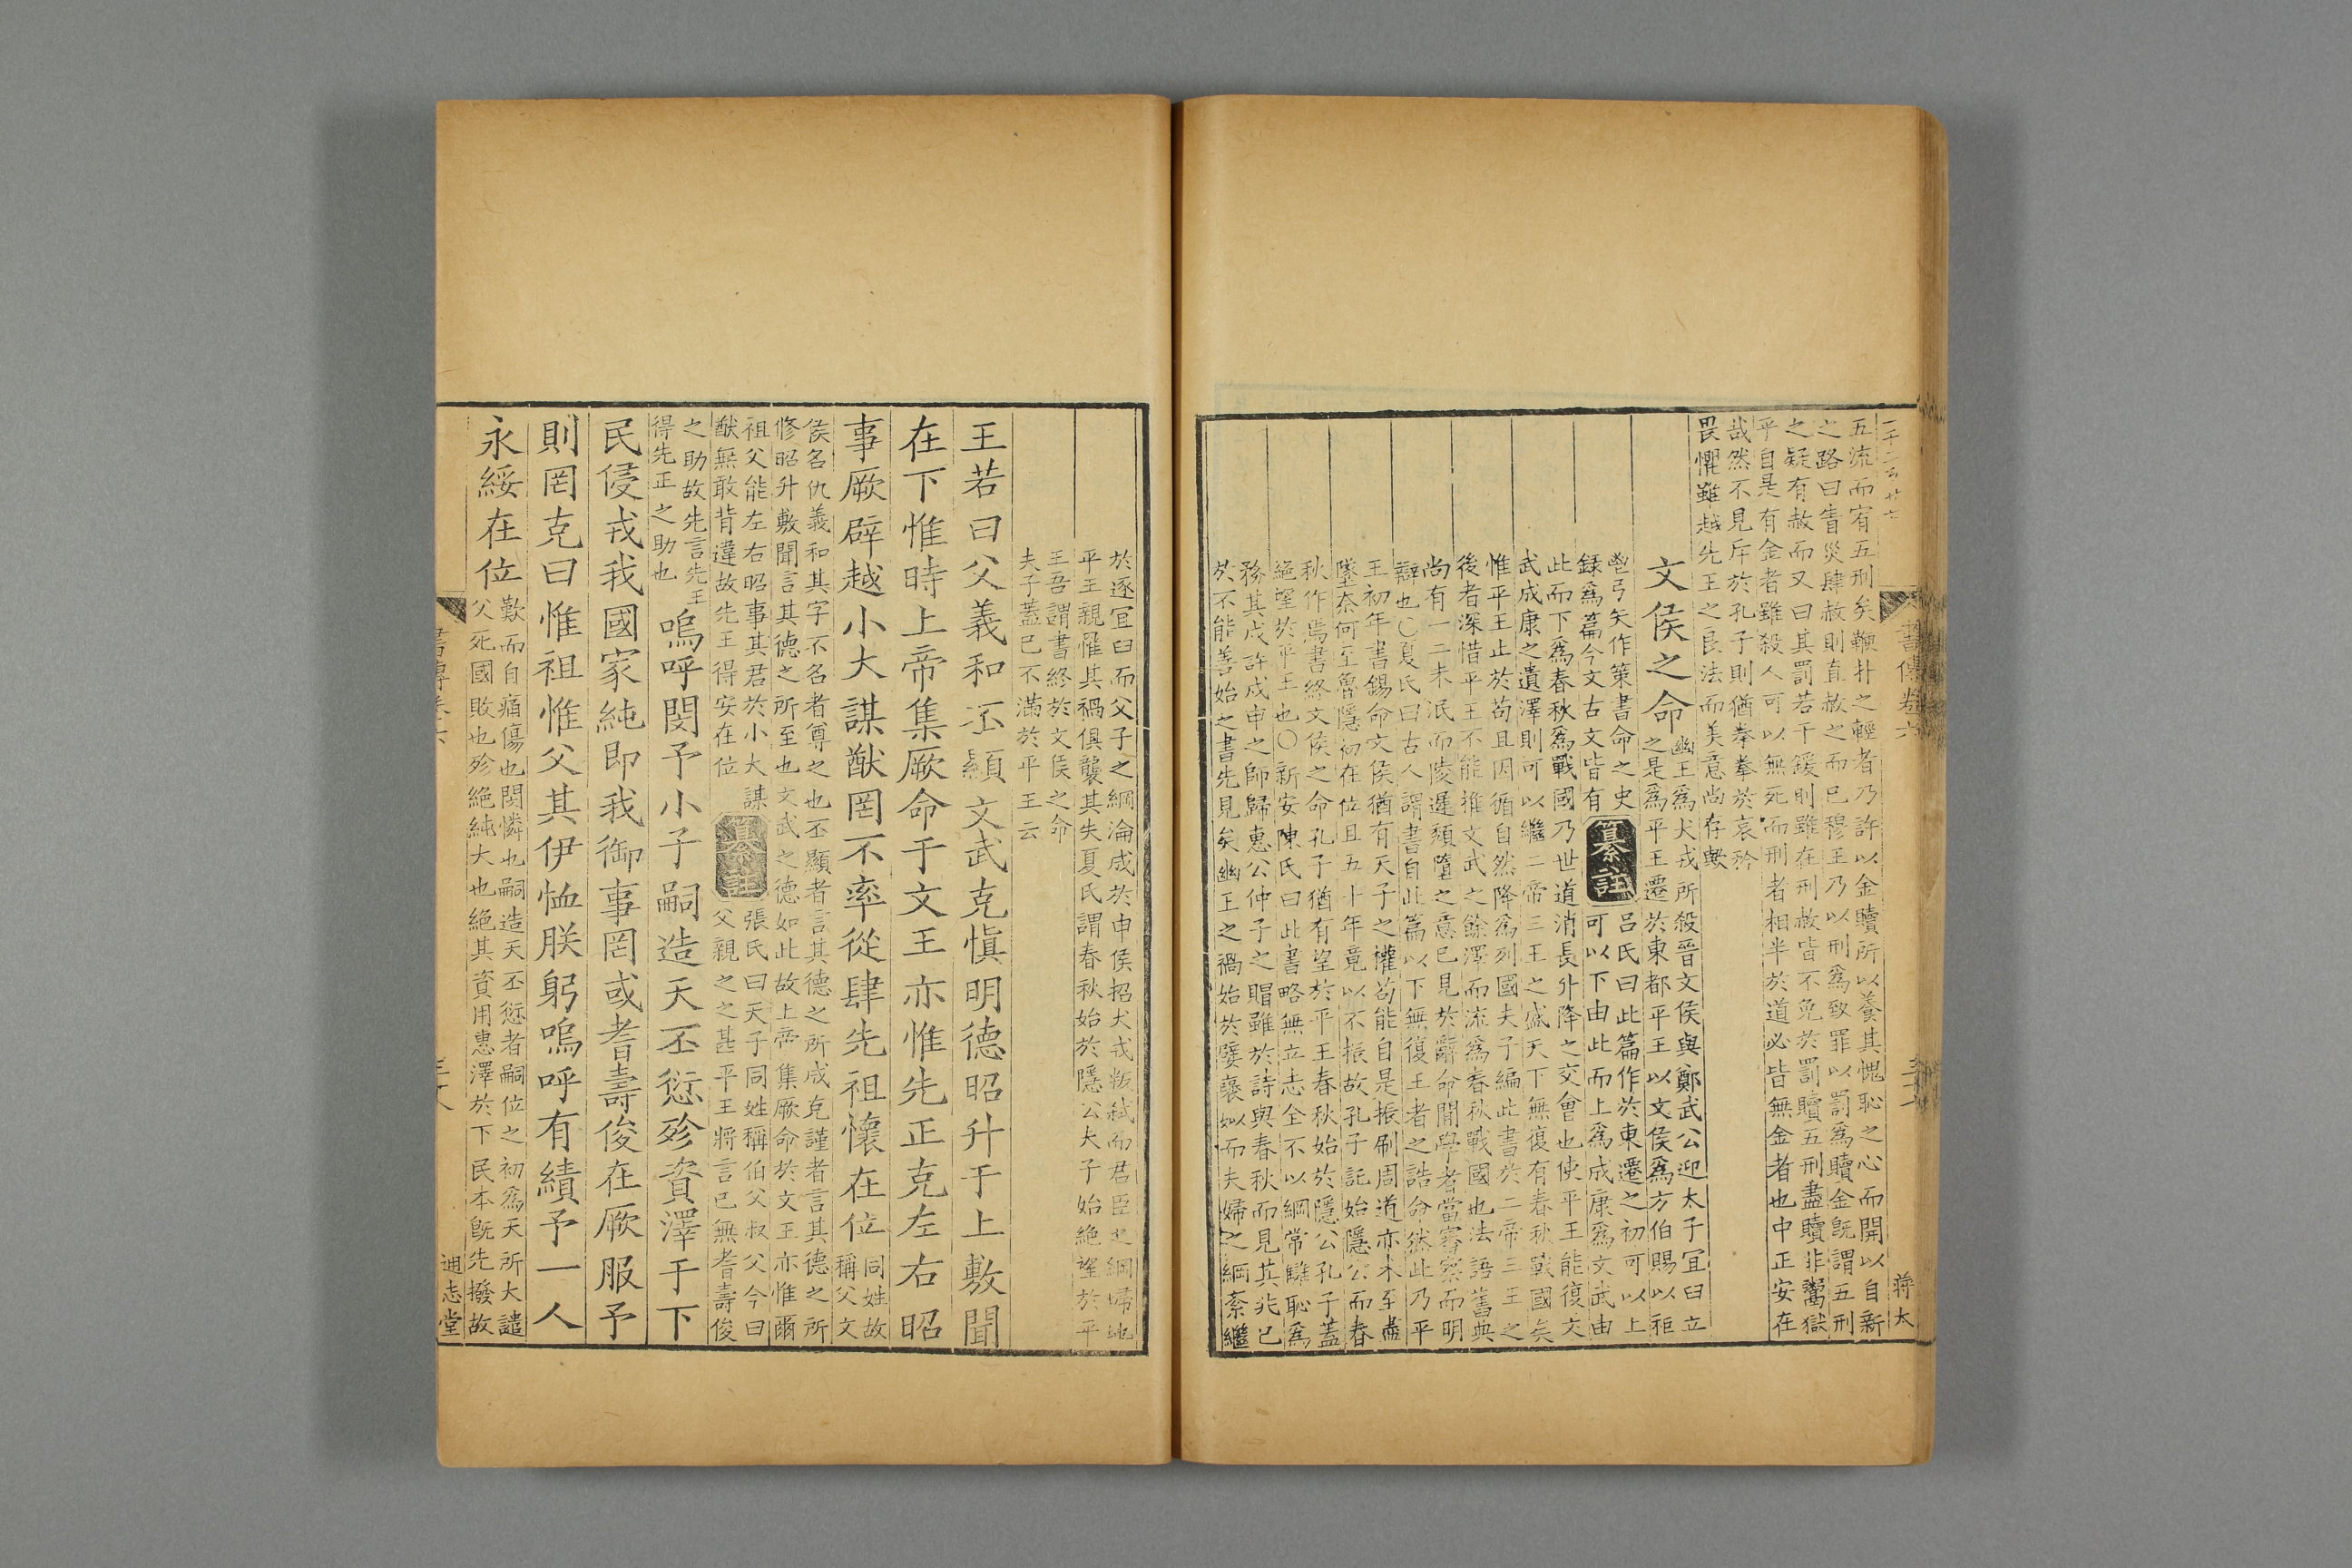 五流而宥五刑矣鞭扑之輕者乃許以金贖所以養其愧恥之心而開以自新
之路曰眚災肆赦則直赦之而已穆王乃以刑爲致罪以罰爲贖金旣謂五刑
之疑有赦而又曰其罰若干鍰則雖在刑赦皆不免於罰贖五刑盡贖非鬻獄
乎自是有金者雖殺人可以無死而刑者相半於道必皆無金者也中正安在
哉然不見斥於孔子則猶拳拳於哀矜
畏懼雖越先王之良法而美意尚存歟
文侯之命
幽王爲犬戎所殺晉文侯與鄭武公迎太子宜臼立
之是爲平王遷於東都平王以文侯爲方伯賜以秬
鬯弓矢作策書命之史
錄爲篇今文古文皆有
纂註
呂氏曰此篇作於東遷之初可以上
可以下由此而上爲成康爲文武由
此而下爲春秋爲戰國乃世道消長升降之交會也使平王能復文
武成康之遺澤則可以繼二帝三王之盛天下無復有春秋戰國矣
惟平王止於苟且因循自然降爲列國夫子編此書於二帝三王之
後者深惜平王不能推文武之餘澤而流爲春秋戰國也法語舊典
尚有一二未泯而陵遲頹墮之意已見於辭命閒學者當審察而明
辯也○夏氏曰古人謂書自此篇以下無復王者之誥命然此乃平
王初年書錫命文侯猶有天子之權苟能自是振刷周道亦未至盡
墜奈何至魯隱初在位且五十年竟以不振故孔子託始隱公而春
秋作焉書終文侯之命孔子猶有望於平王春秋始於隱公孔子蓋
絕望於平王也○新安陳氏曰此書略無立志全不以綱常讎恥爲
務其戍許戍申之師歸惠公仲子之賵雖於詩與春秋而見其兆已
於不能善始之書先見矣幽王之禍始於嬖褒姒而夫婦之綱紊繼
於逐宜臼而父子之綱淪成於申侯招犬戎叛弑而君臣之綱埽地
平王親罹其禍俱襲其失夏氏謂春秋始於隱公夫子始絕望於平
王吾謂書終於文侯之命
夫子蓋已不滿於平王云
王若曰父義和丕顯文武克愼明德昭升于上敷聞
在下惟時上帝集厥命于文王亦惟先正克左右昭
事厥辟越小大謀猷罔不率從肆先祖懷在位
同姓故
稱父文
侯名仇義和其字不名者尊之也丕顯者言其德之所成克謹者言其德之所
修昭升敷聞言其德之所至也文武之德如此故上帝集厥命於文王亦惟爾
祖父能左右昭事其君於小大謀
猷無敢背違故先王得安在位
纂註
張氏曰天子同姓稱伯父叔父今曰
父親之之甚平王將言已無耆壽俊
之助故先言先王
得先正之助也
嗚呼閔予小子嗣造天丕愆殄資澤于下
民侵戎我國家純即我御事罔或耆壽俊在厥服予
則罔克曰惟祖惟父其伊恤朕躬嗚呼有績予一人
永綏在位
歎而自痛傷也閔憐也嗣造天丕愆者嗣位之初爲天所大譴
父死國敗也殄絕純大也絕其資用惠澤於下民本旣先撥故
書傳卷六
通志堂
書傳卷六
蔣太